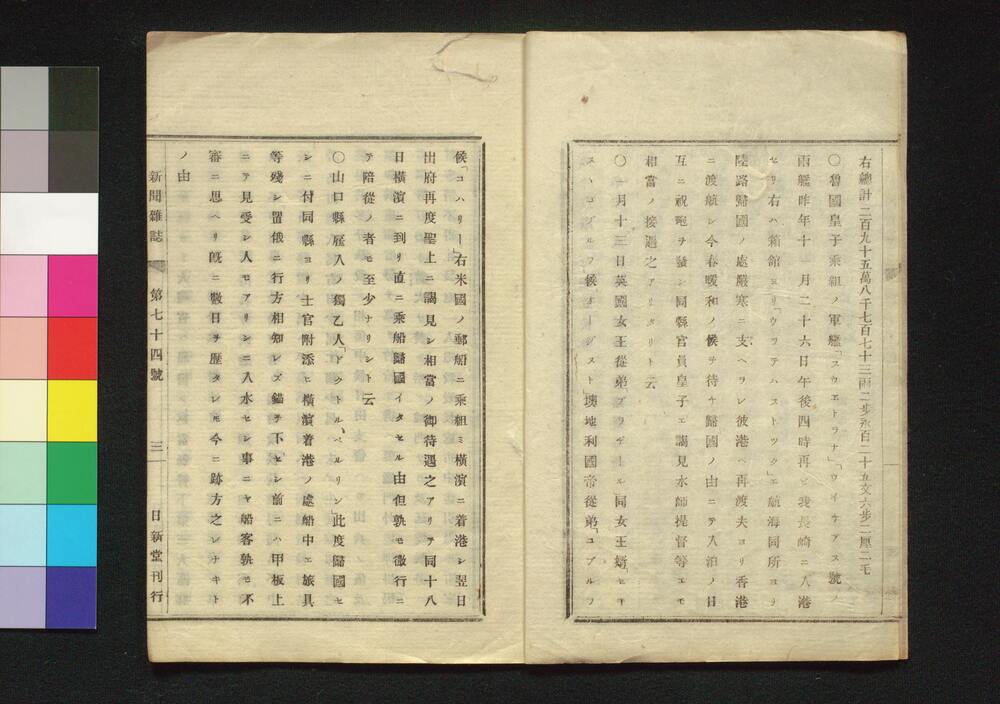 右總計二百九十五萬八千七百七十三兩二步永百二十五文六步二厘二毛
〇魯國皇子乘組ノ軍艦「スウエトラナ」「ウイケアス」號ノ
兩艦昨年十一月二十六日午後四時再ビ我長崎ニ入港
セリ右ハ箱館ヨリ「ウラヲアハストツク」エ航海同所ヨリ
陸路歸國ノ處嚴寒ニ支ヘラレ彼港ヘ再渡夫ヨリ香港
ニ渡航シ今春暖和ノ候ヲ待チ歸國ノ由ニテ入泊ノ日
互ニ祝砲ヲ發シ同縣官員皇子エ謁見水師提督等エモ
相當ノ接遇之アリタリト云
〇一月十三日英國女王從弟 同女王婿セキ
スハコブルフ候「オーゴスト」墺地利國帝從弟「コブルフ
候「コハリー」右米國ノ郵船ニ乘組ミ橫濱ニ着港シ翌日
出府再度聖上ニ謁見シ相當ノ御待遇之アリテ同十八
日橫濱ニ到リ直ニ乘船歸國イタセル由但孰モ微行ニ
テ陪從ノ者モ至少ナリシト云
〇山口縣雇入ノ獨乙人「ドクトル、ベルリン」此度歸國セ
シニ付同縣ヨリ士官附添ヒ橫濱着港ノ處船中エ旅具
等殘シ置俄ニ行方相知レズ錨ヲ下セシ前ニハ甲板上
ニテ見受シ人モアリシニ入水セシ事ニヤ船客孰モ不
審ニ思ヘリ旣ニ數日ヲ歷タレモ今ニ跡方之レナキト
ノ由
新聞雜誌 第七十四號 三 日新堂刊行